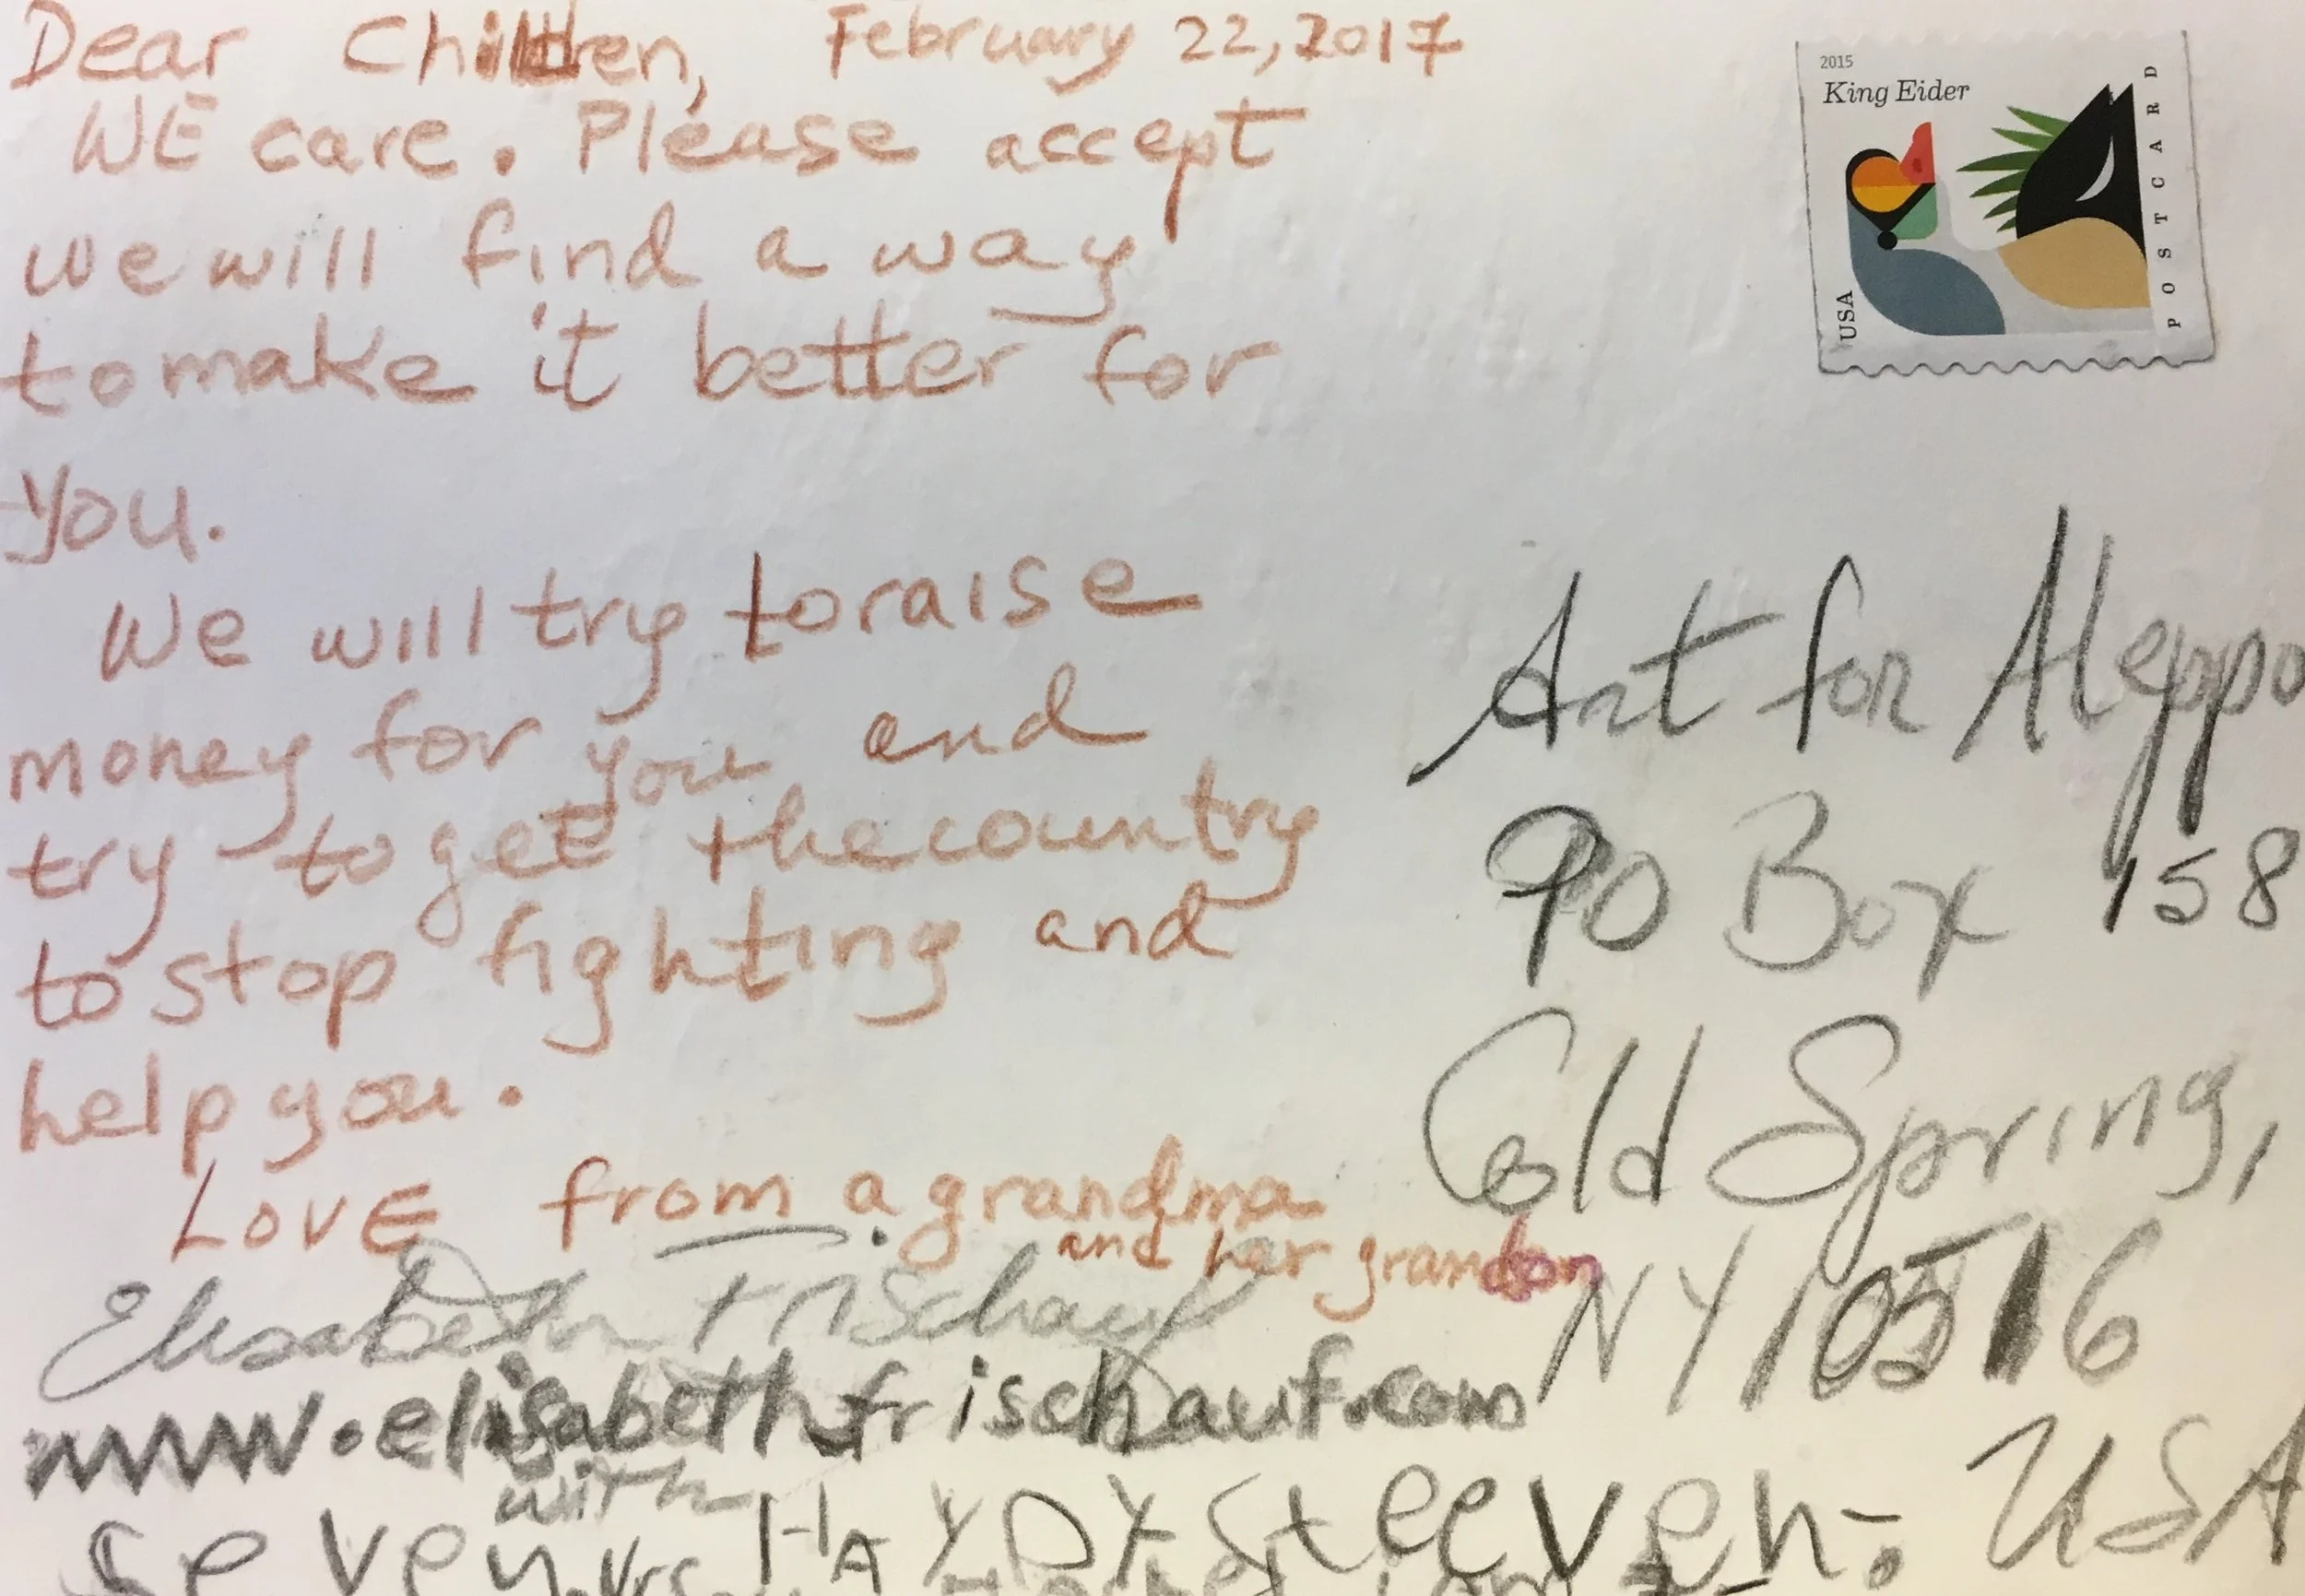 Dear Children, February 22, 2017
WE care. Please accept
we will find a way
to make it better for
you.
We will try to raise
money for you and
try to get the country
to stop fighting and
help you.
LOVE from a grandma
and her grandson
Elisabeth Frischauf
www.elisabethfrischauf.com
with HAYDY Steeven:
seven yrs
2015
King Eider
USA
POSTCARD
Art for Aleppo
PO Box 158
Cold Spring,
NY 10516
USA